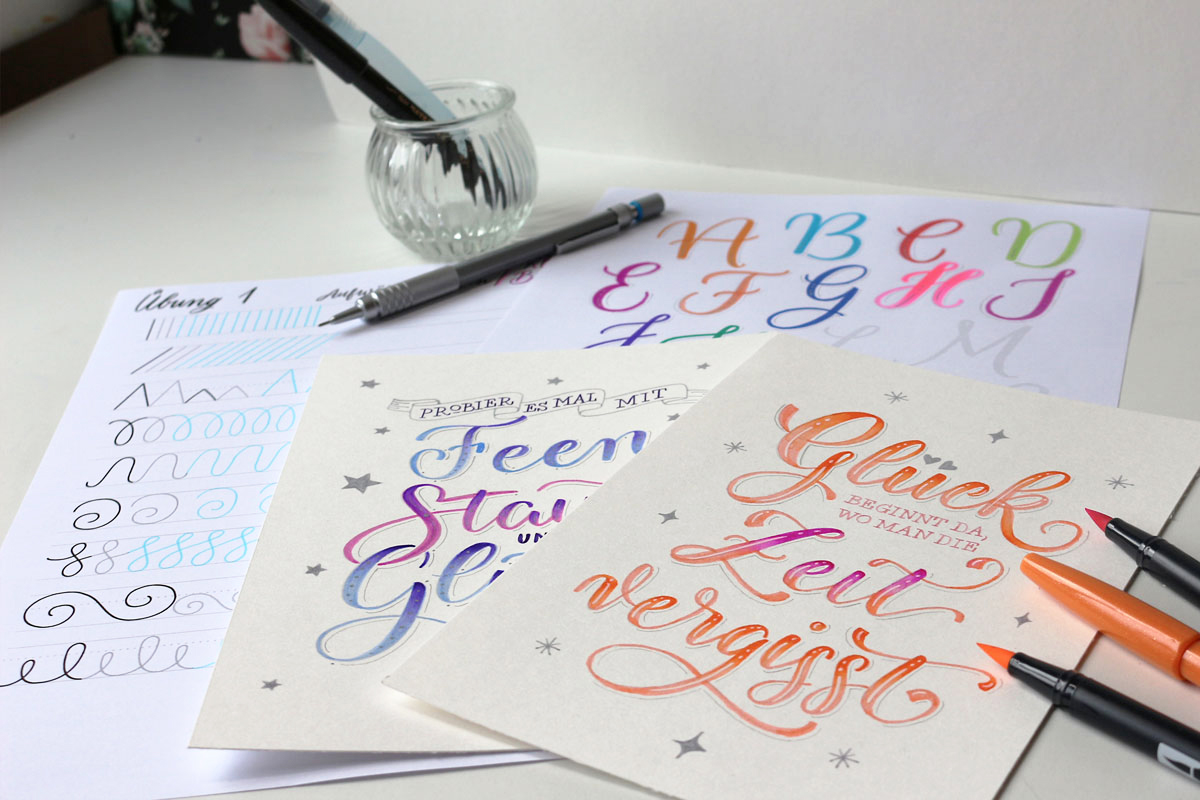 Übung 1
A B C D
E F G H I
M
PROBIER ES MAL MIT
Feen
Glück
BEGINNT DA,
WO MAN DIE
Zeit
vergisst